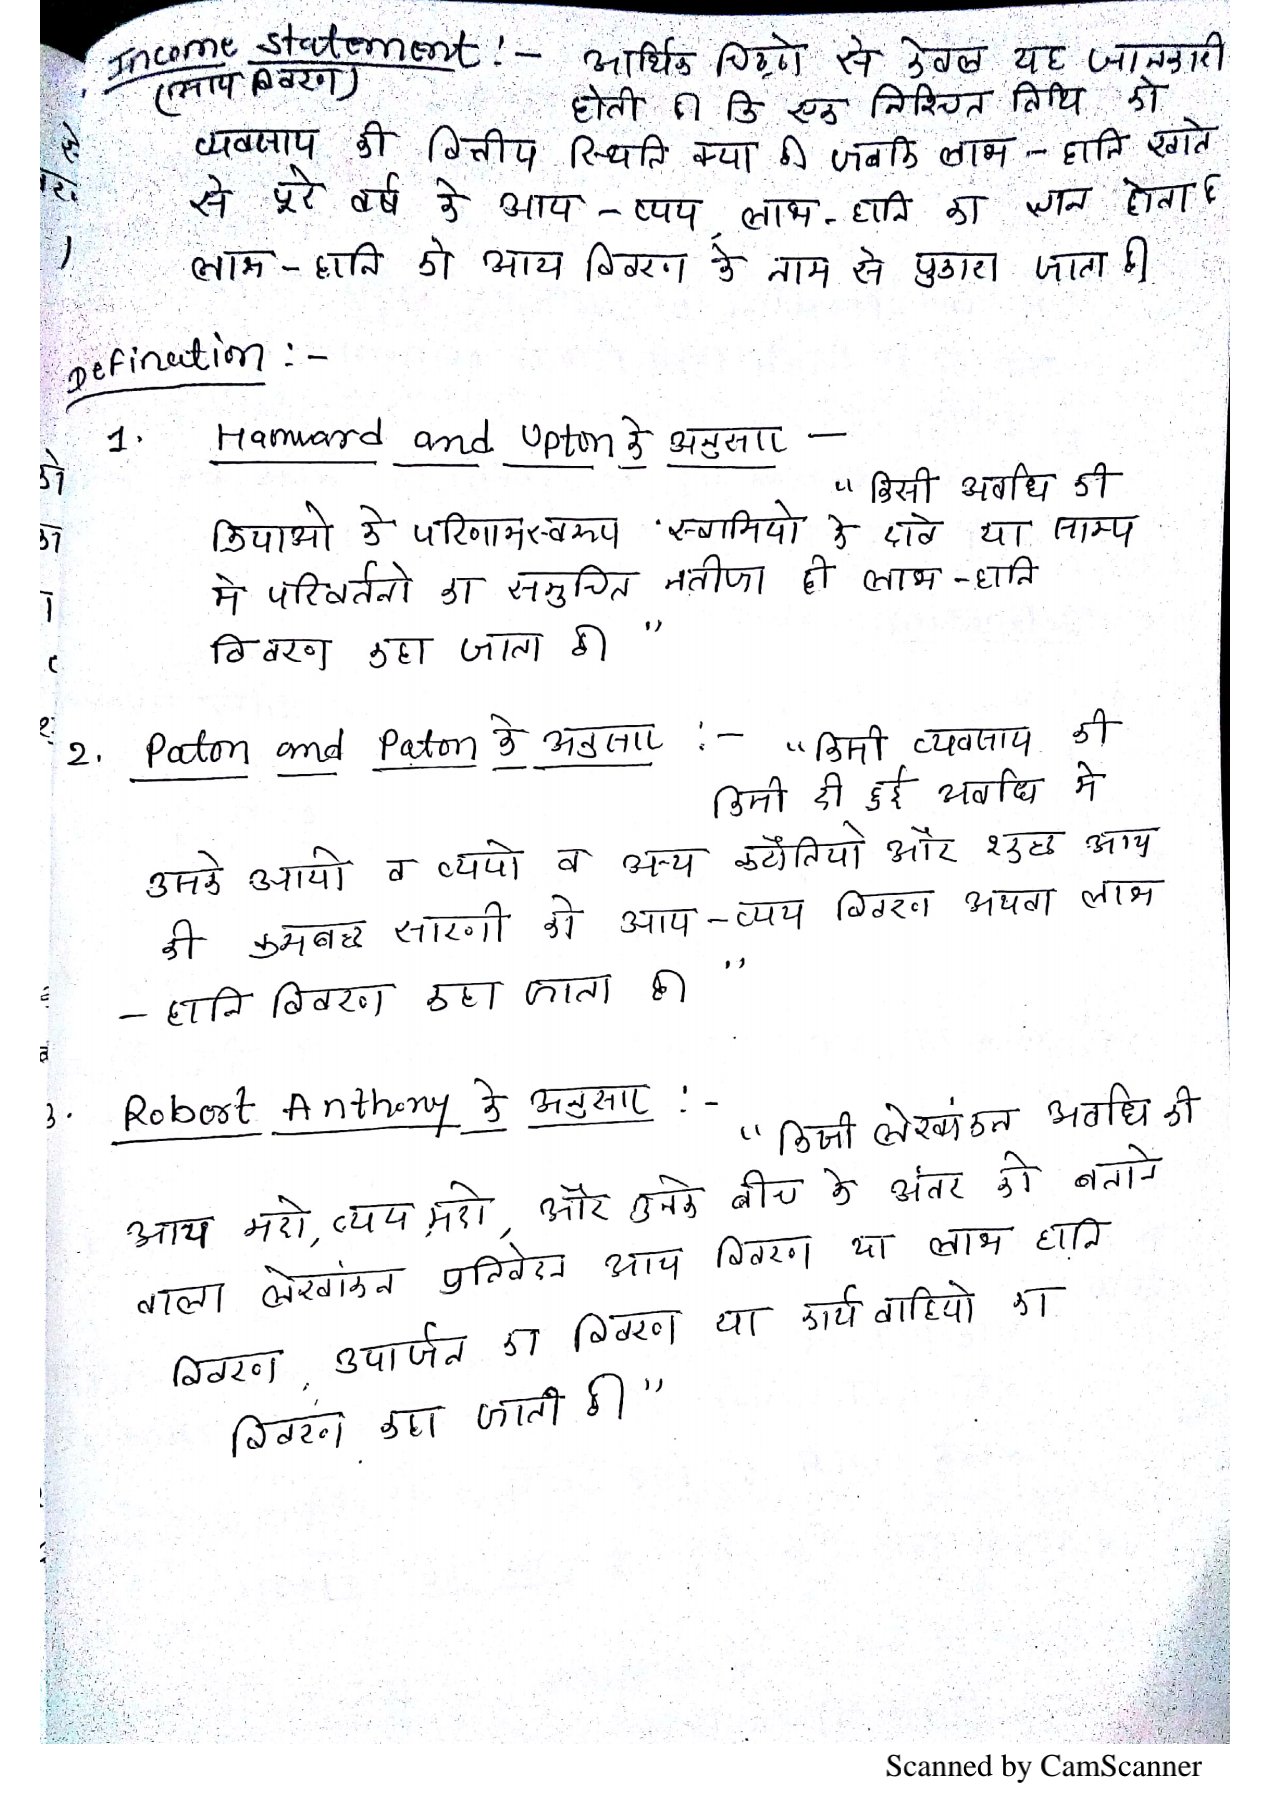 Income Statement :- आर्थिक चिट्ठो से केवल यह जानकारी
(आय विवरण)
होती है कि एक निश्चित तिथि को
व्यवसाय की वित्तीय स्थिति क्या है जबकि लाभ - हानि खाते
से पूरे वर्ष के आय - व्यय, लाभ - हानि का ज्ञान होता है
लाभ - हानि को आय विवरण के नाम से पुकारा जाता है
Defination :-
1. Hamward and Upton के अनुसार -
"किसी अवधि की
क्रियाओ के परिणामस्वरूप स्वामियो के दावे या साम्य
मे परिवर्तनो का समुचित नतीजा ही लाभ - हानि
विवरण कहा जाता है"
2. Paton and Paton के अनुसार :- "किसी व्यवसाय की
किसी दी हुई अवधि मे
उसके आयो व व्ययो व अन्य कटौतियो और शुद्ध आय
की क्रमबद्ध सारणी को आय - व्यय विवरण अथवा लाभ
- हानि विवरण कहा जाता है"
3. Robert Anthony के अनुसार :-
"किसी लेखांकन अवधि की
आय मदो, व्यय मदो, और उनके बीच के अंतर को बताने
वाला लेखांकन प्रतिवेदन आय विवरण या लाभ हानि
विवरण, उपार्जन का विवरण या कार्यवाहियो का
विवरण कहा जाती है"
Scanned by CamScanner